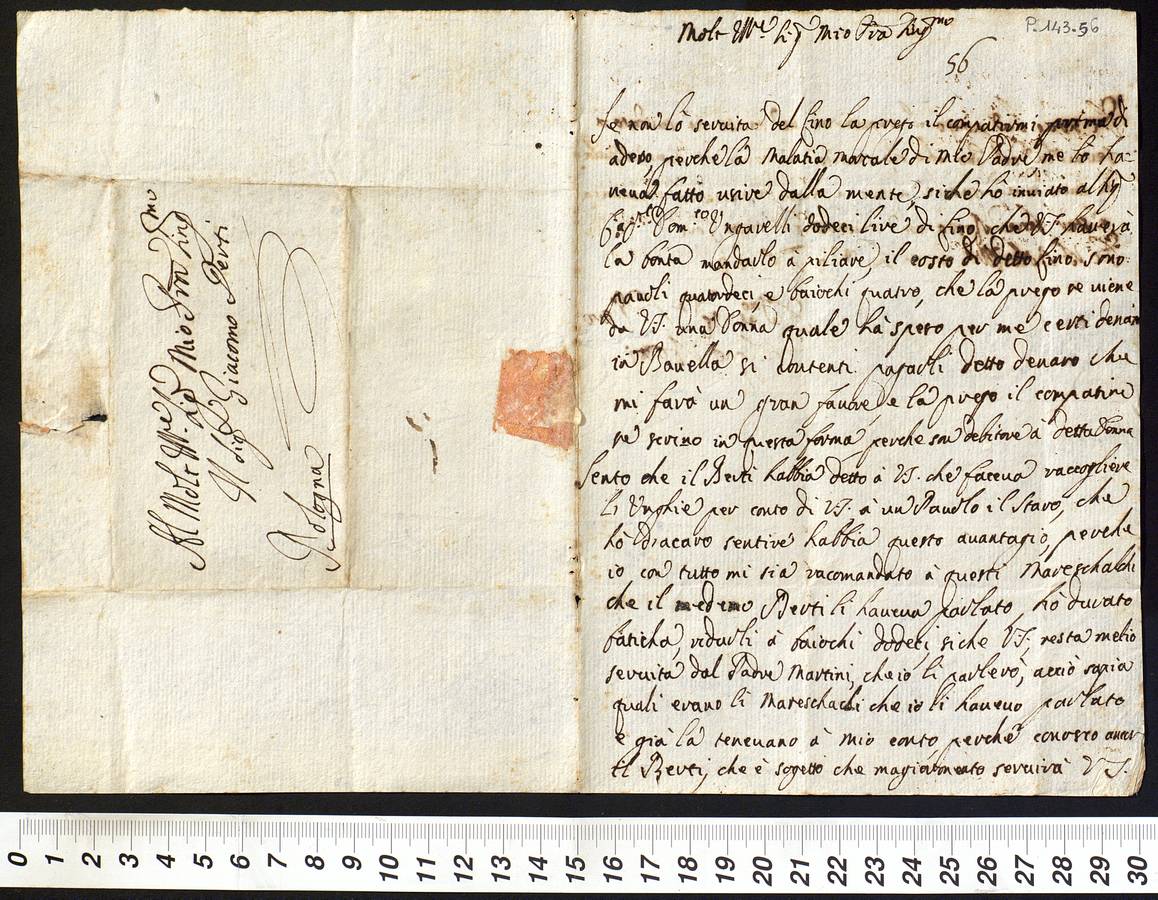 Al Molt Ill.re Sig.r Mio Pron Sing.mo
Il Sig.r Giacomo Perti
Bologna
P.143.56
Molt Ill.re Sig.r Mio Pron Sing.mo
56
Se non lò servita del lino la prego il compatirmi prima di
adeso, perche la malatia mortale di mio Padre me lo ha=
veva fatto usire dalla mente, siche ho inviato al Sig.r
Dom.co Ungarelli dodeci lire di lino che V.S. haverà
la bontà mandarlo à piliare, il costo di detto lino sono
pauoli quatordeci, e baiochi quatro, che la prego se viene
da V.S. una donna quale hà speso per me certi denari
in si contenti pagarli detto denaro che
mi farà un gran favore e la prego il compatire
se scrivo in questa forma perche son debitore à detta donna
Sento che il Berti habbia detto à V.S. che faceva raccogliere
li Unghie per conto di V.S. à un Pauolo il staro, che
hò caro sentire habbia questo avantagio, perche
io con tutto mi sia racomandato à questi Mareschalchi
che il medemo Berti li haveva parlato, hò durato
faticha, redurli à baiochi dodeci, siche V.S. resta melio
servita dal Padre Martini, che io li parlerò, acciò sapia
quali erano li Mareschachi che io li havevo parlato
e già là tenevano à mio conto perche conosco
il Berti, che è sogetto che magiormente servirà V.S.